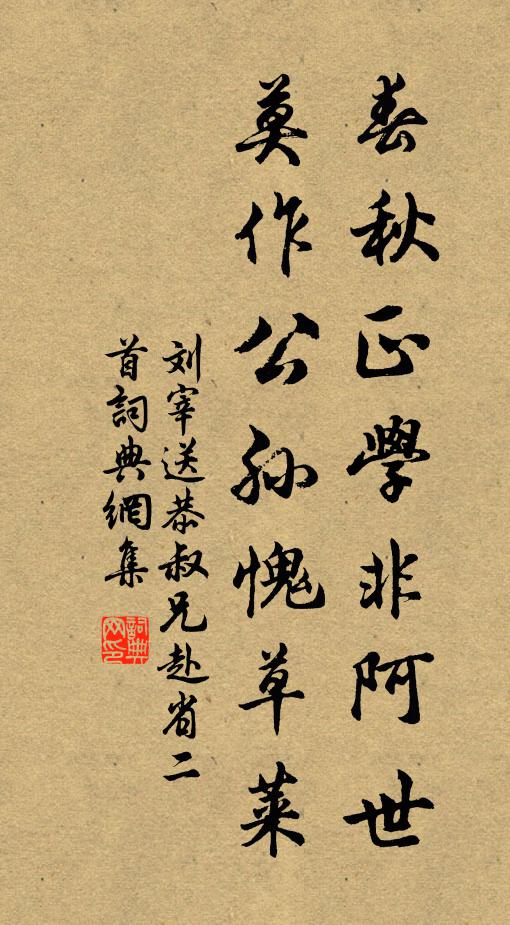 春秋正學非阿世
莫作公孙愧草萊
刘宰送恭叔兄赴省二
首詞典網集
詞典
网印